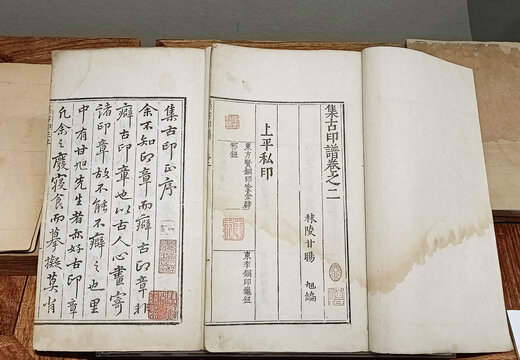 集古印譜卷之二
秣陵甘暘 旭編
上平私印
東方賢銅印塗金辟
邪鈕
銅印龜鈕
集古印正序
余不知印章而癖古印章非
癖古印章也以古人心畫寄
諸印章故不能不癖之也里
中有甘旭先生者亦好古印章
凡余之廢寢食而摹擬莫肖